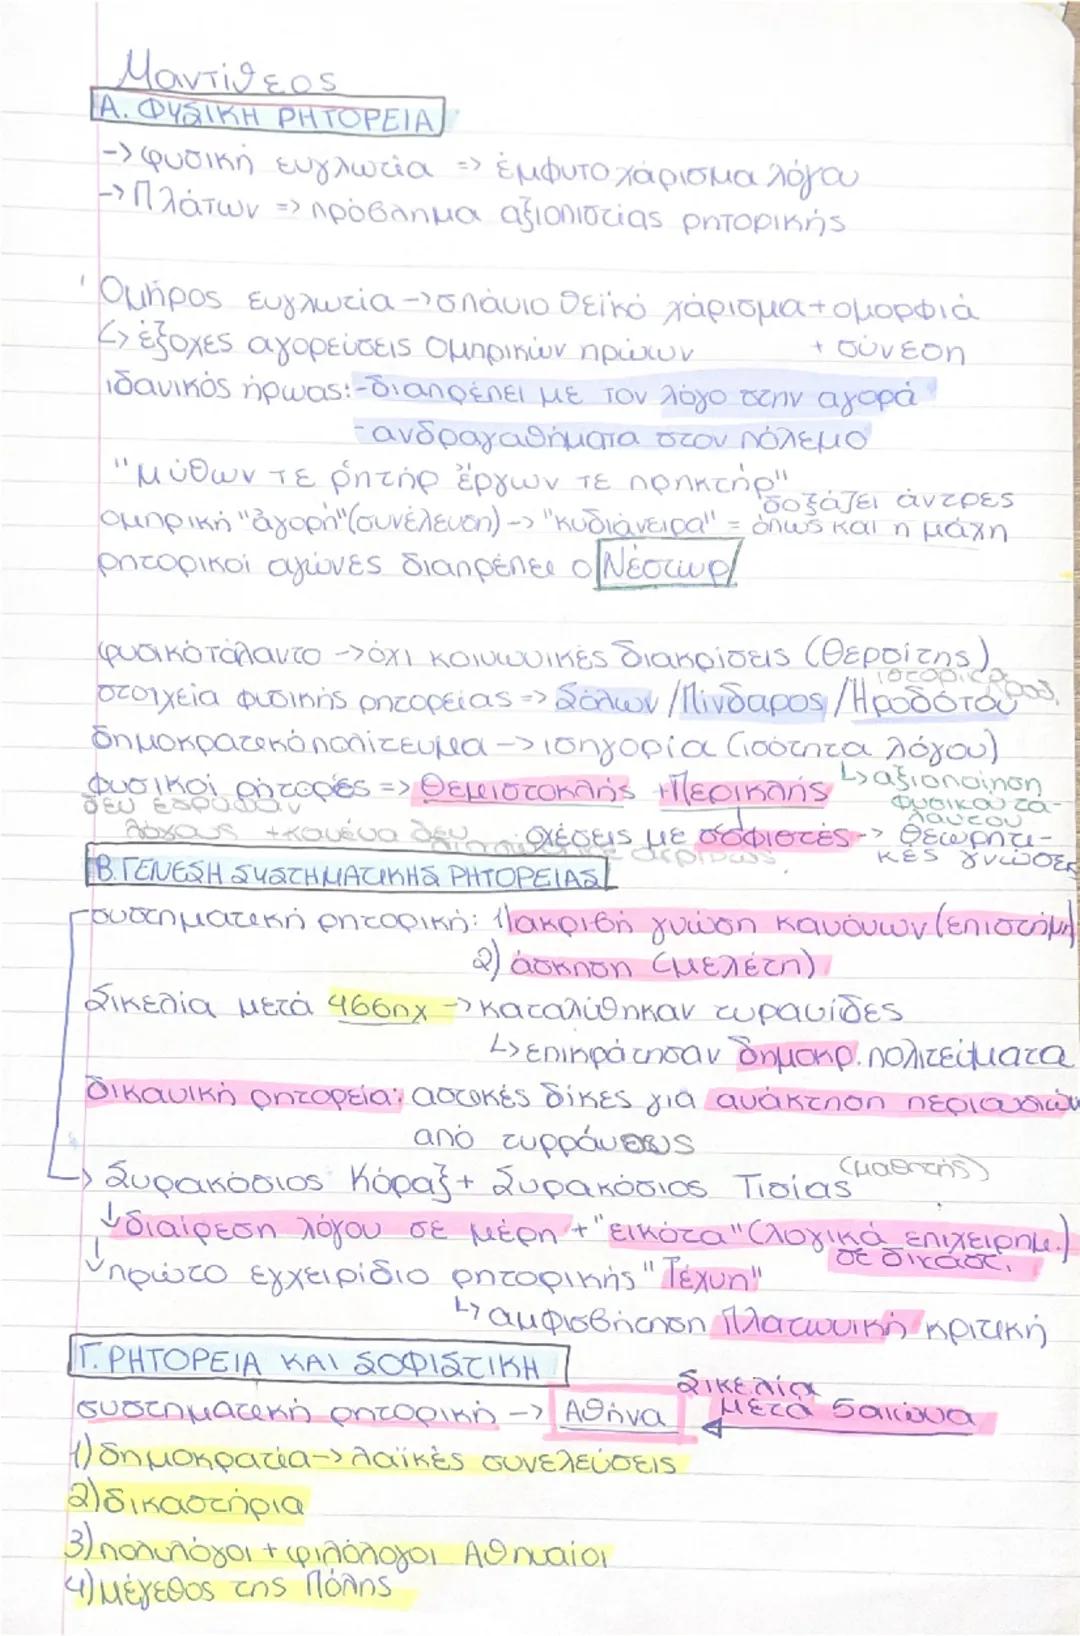 Μαντίθεος
Α. ΦΥΣΙΚΗ ΡΗΤΟΡΕΙΑ
-> φυσική ευγλωτία => έμφυτο χάρισμα λόγου
-> Πλάτων => πρόβλημα αξιοπιστίας ρητορικής
Ομήρος ευγλωτία -> σπάνιο θεϊκό χάρισμα + ομορφιά
↳ έξοχες αγορεύσεις ομηρικών ηρώων + σύνεση
ιδανικός ήρωας: - διαπρέπει με τον λόγο στην αγορά
- ανδραγαθήματα στον πόλεμο
"μύθων τε ῥητήρ ἔργων τε πρηκτήρ"
δοξάζει άντρες
ομηρική "ἀγορή" (συνέλευση) -> "κυδιάνειρα" = όπως και η μάχη
ρητορικοί αγώνες διαπρέπει ο Νέστωρ
φυσικό ταλαντο -> όχι κοινωνικές διακρίσεις (Θερσίτης)
στοιχεία φυσικής ρητορείας => Σόλων / Πίνδαρος / Ηροδότου
δημοκρατικό πολίτευμα -> ισηγορία (ισότητα λόγου)
φυσικοί ρήτορες => Θεμιστοκλής + Περικλής ↳ αξιοποίηση
δεν έγραψαν φυσικού τα-
λόγους + κανένα δεν λαντου
σχέσεις με σοφιστές -> θεωρητι-
ακριβώς κές γνώσεις
Β. ΓΕΝΕΣΗ ΣΥΣΤΗΜΑΤΙΚΗΣ ΡΗΤΟΡΕΙΑΣ
συστηματική ρητορική: 1) ακριβή γνώση κανόνων (επιστήμη)
2) άσκηση (μελέτη)
Σικελία μετά 466πχ -> καταλύθηκαν τυρανίδες
↳ επικράτησαν δημοκρ. πολιτεύματα
δικανική ρητορεία: αστικές δίκες για ανάκτηση περιουσιών
από τυρράννους
-> Συρακόσιος Κόραξ + Συρακόσιος Τισίας (μαθητής)
↓ διαίρεση λόγου σε μέρη + "εικότα" (λογικά επιχειρημ.)
σε δικαστ.
↓ πρώτο εγχειρίδιο ρητορικής "Τέχνη"
↳ αμφισβήτηση Πλατωνική κριτική
Γ. ΡΗΤΟΡΕΙΑ ΚΑΙ ΣΟΦΙΣΤΙΚΗ
Σικελία
συστηματική ρητορική -> Αθήνα μετά 5 αιώνα
1) δημοκρατία -> λαϊκές συνελεύσεις
2) δικαστήρια
3) πολυλόγοι + φιλόλογοι Αθηναίοι
4) μέγεθος της Πόλης